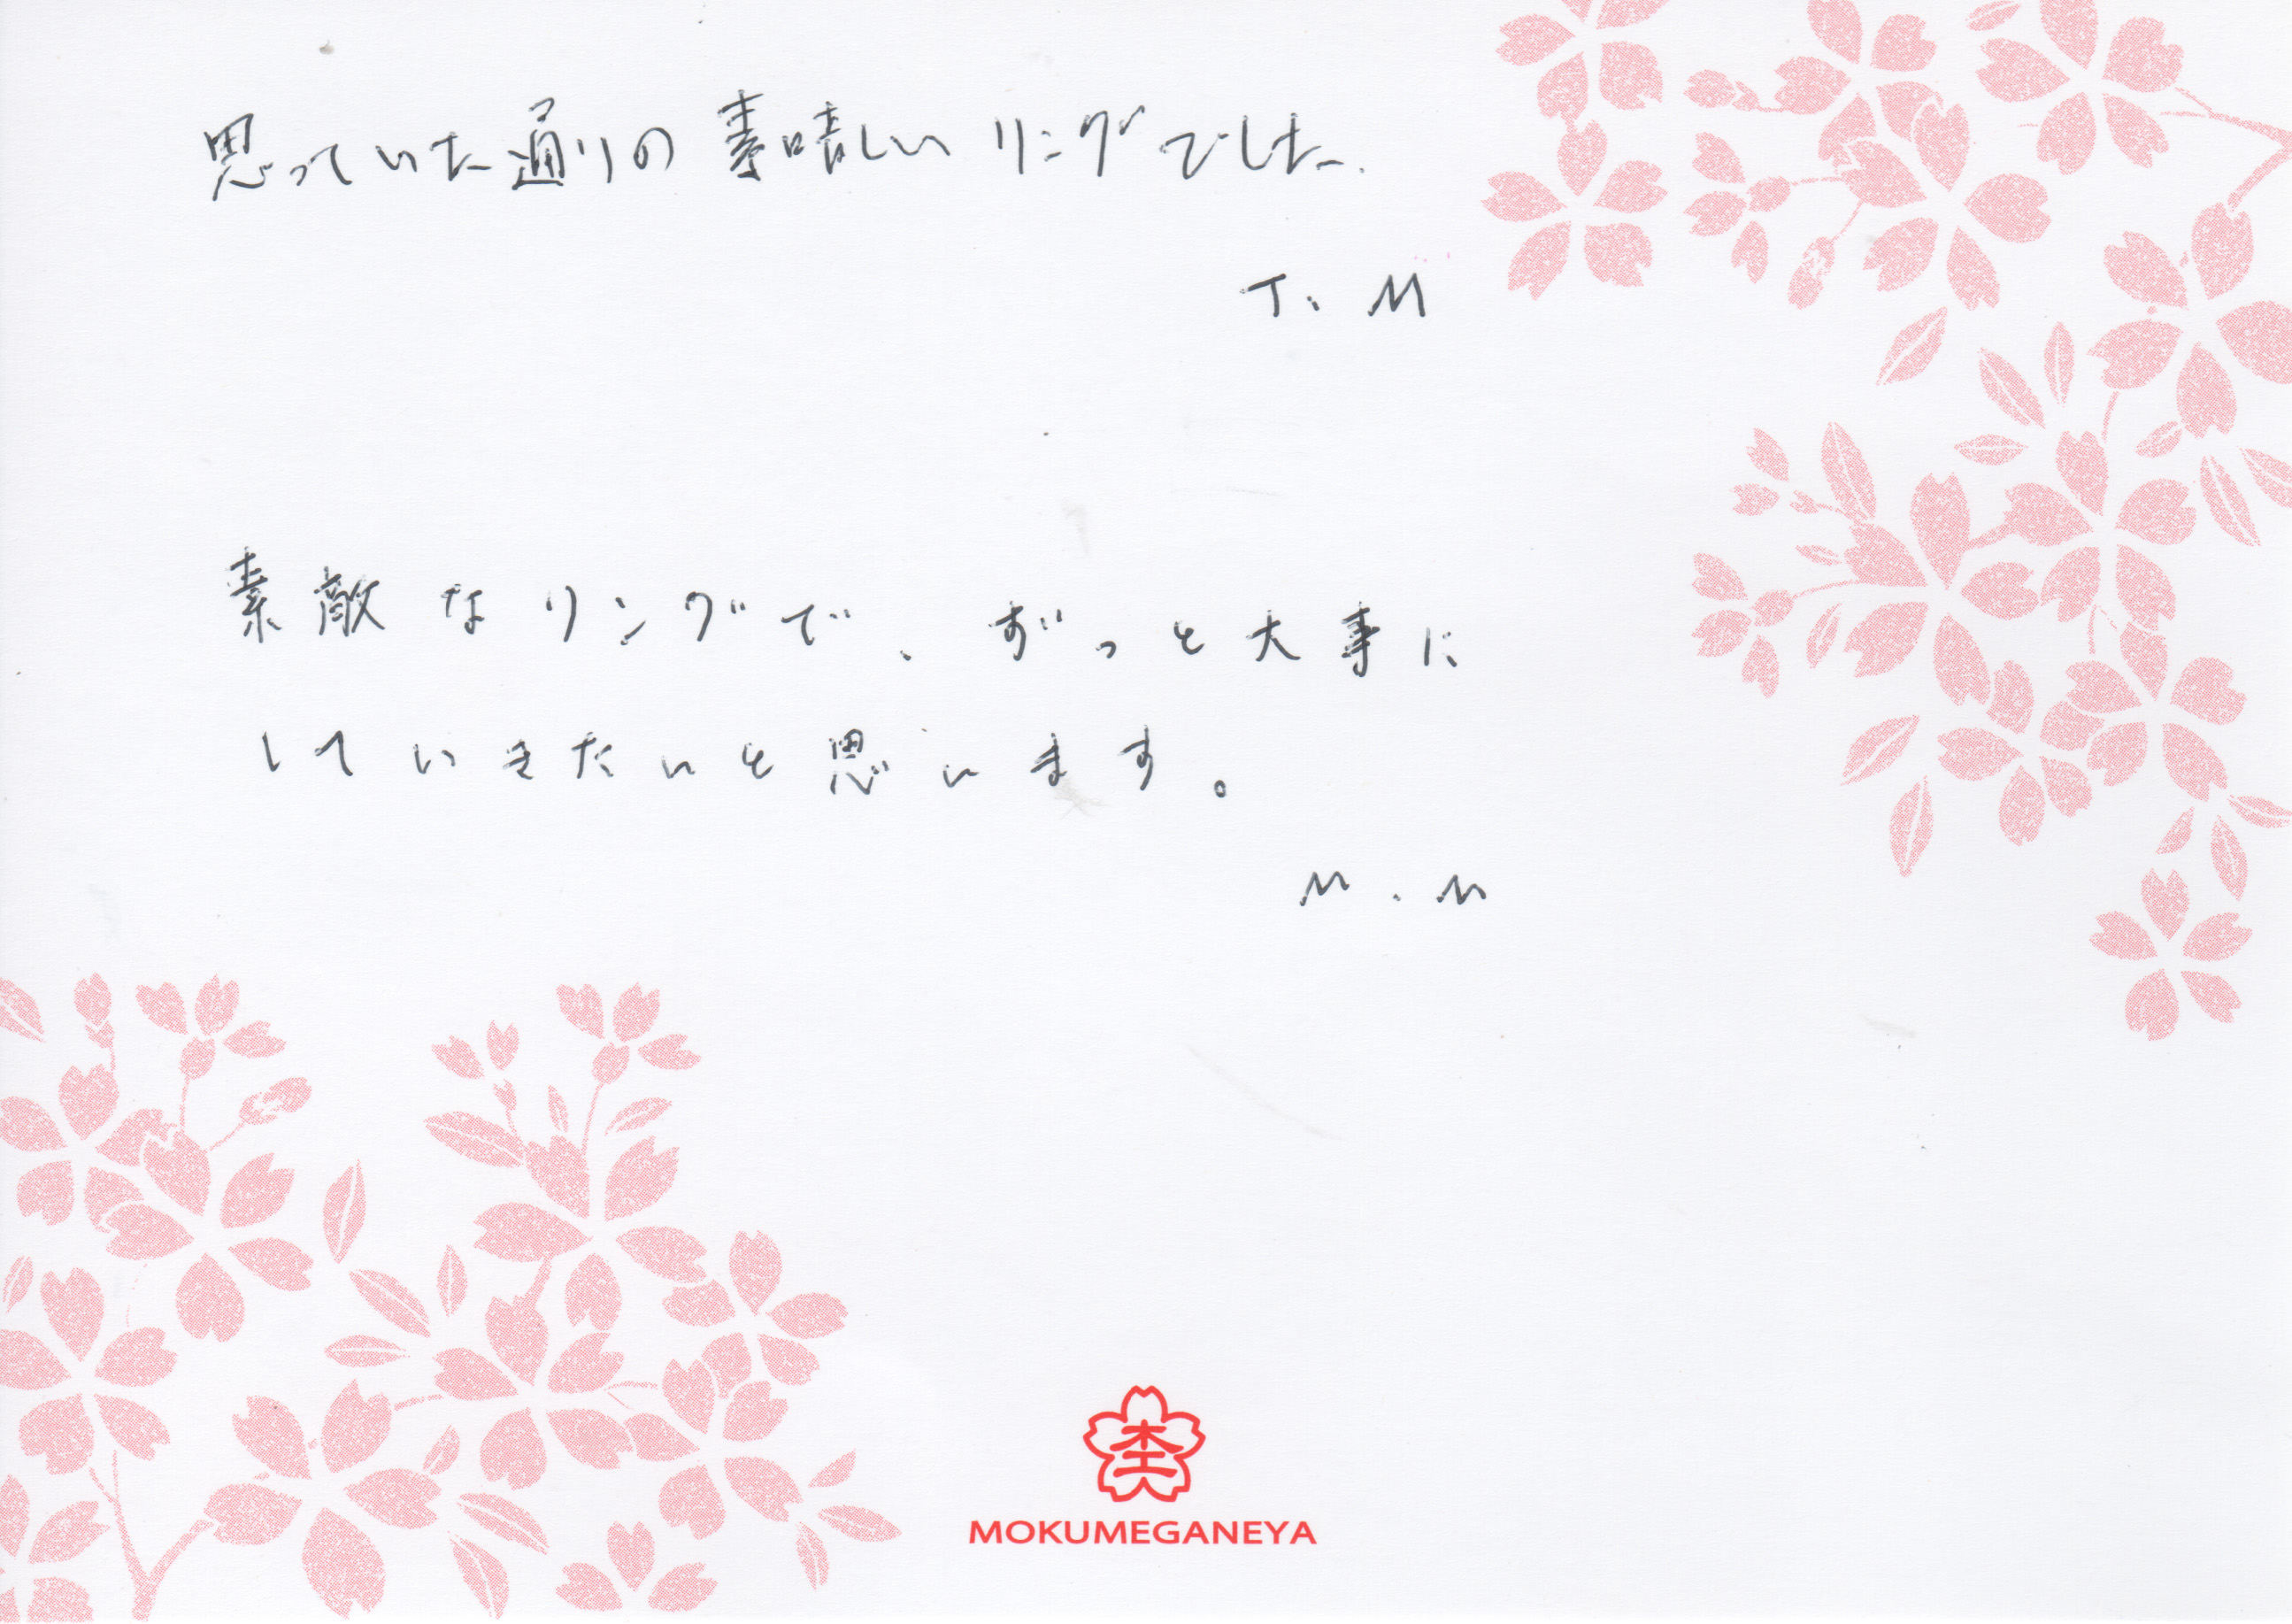 思っていた通りの素晴しいリングでした.
T. M
素敵なリングで、ずっと大事に
していきたいと思います。
M. M
杢
MOKUMEGANEYA